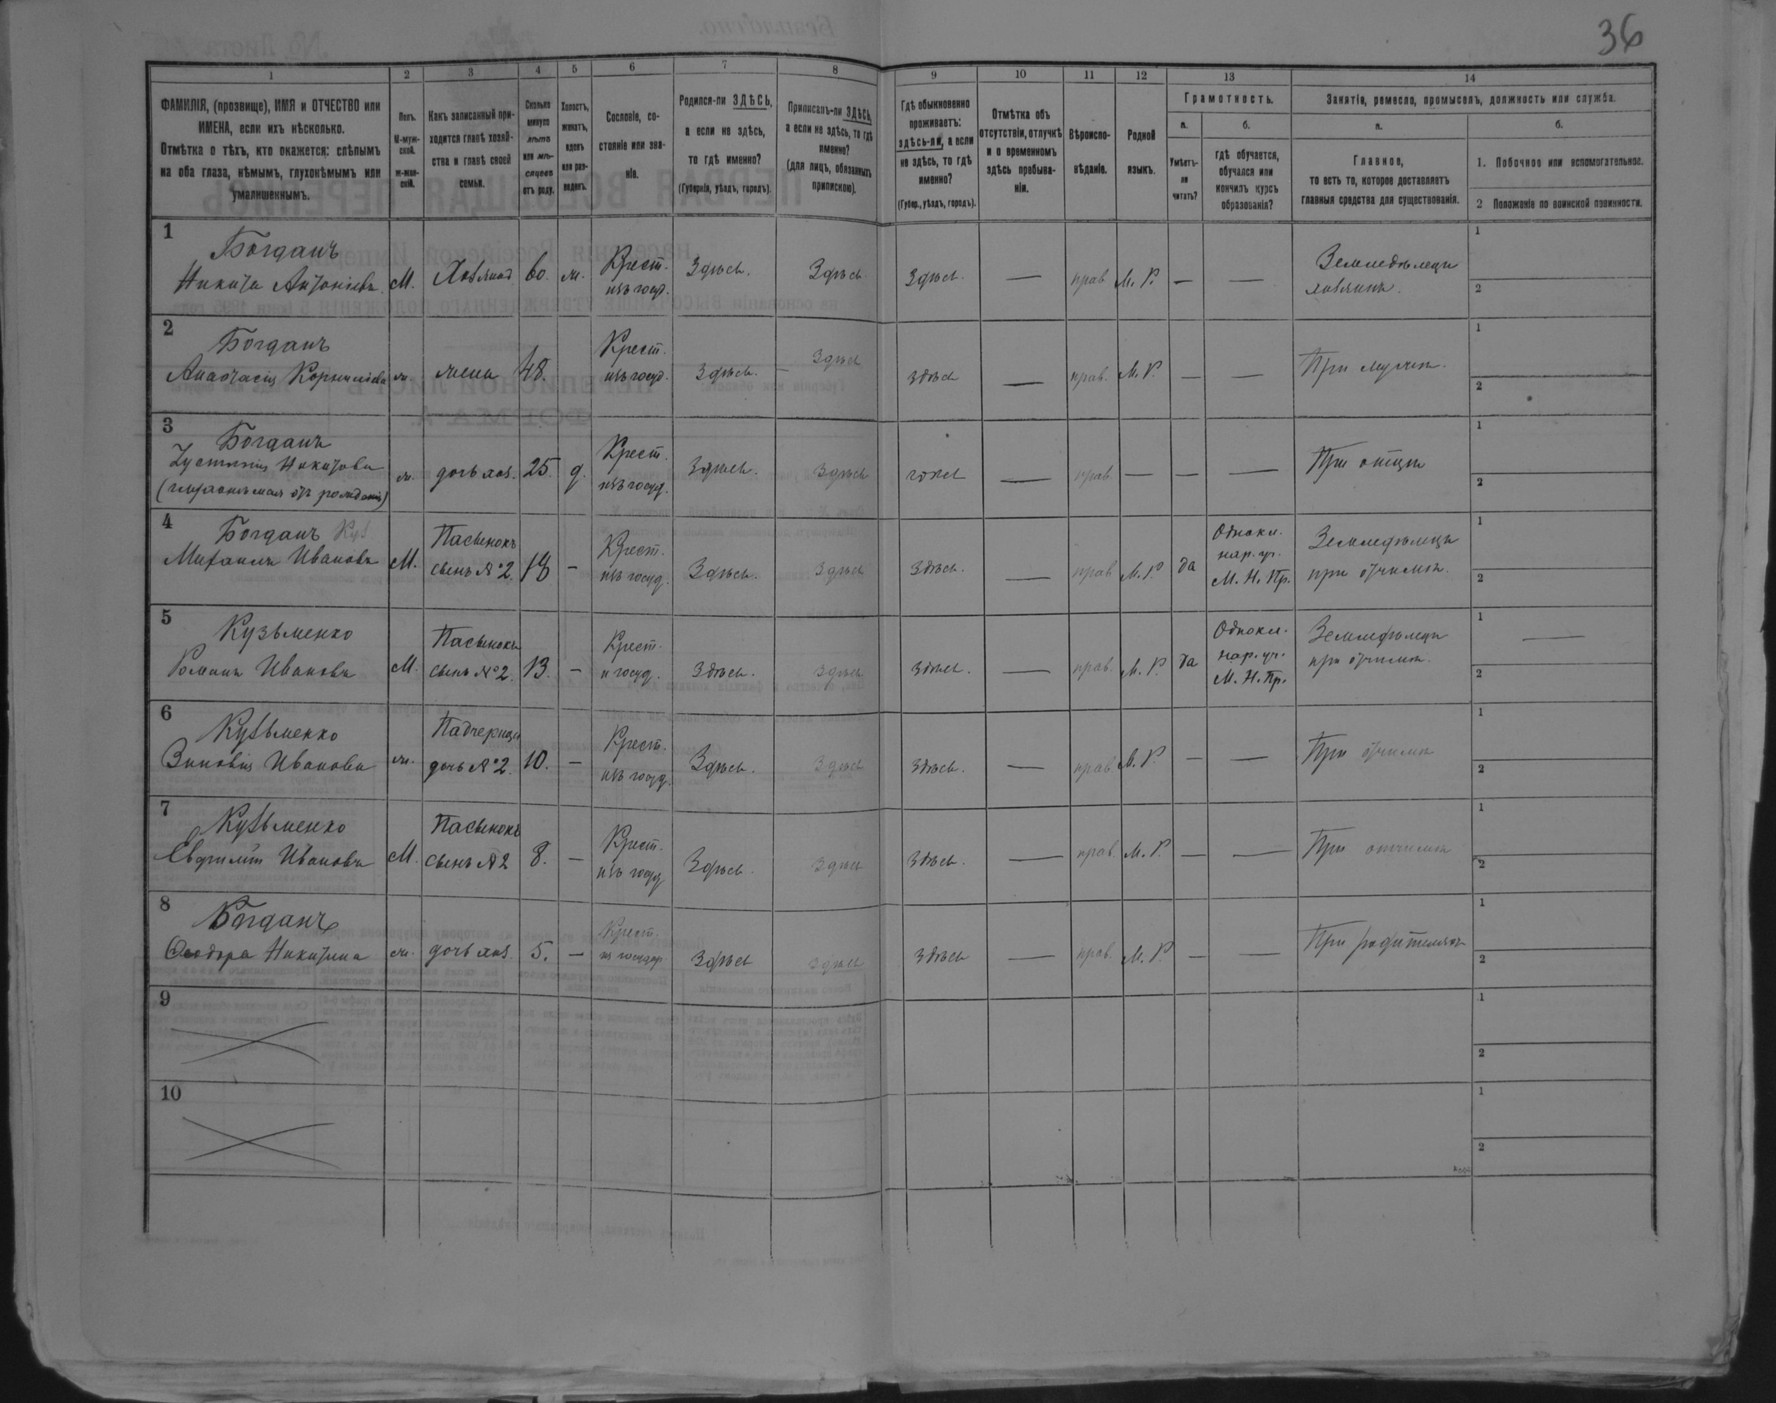 36
1 2 3 4 5 6 7 8 9 10 11 12 13 14
ФАМИЛІЯ, (прозвище), ИМЯ и ОТЧЕСТВО или
ИМЕНА, если ихъ нѣсколько.
Отмѣтка о тѣхъ, кто окажется: слѣпымъ
на оба глаза, нѣмымъ, глухонѣмымъ или
умалишеннымъ.
Полъ.
М-муж-
ской.
ж-жен-
скій.
Какъ записанный при-
ходится главѣ хозяй-
ства и главѣ своей
семьи.
Сколько
минуло
лѣтъ
или мѣ-
сяцевъ
отъ роду.
Холостъ,
женатъ,
вдовъ
или раз-
веденъ.
Сословіе, со-
стояніе или зва-
ніе.
Родился-ли ЗДѢСЬ,
а если не здѣсь,
то гдѣ именно?
(Губернія, уѣздъ, городъ).
Приписанъ-ли ЗДѢСЬ,
а если не здѣсь, то гдѣ
именно?
(для лицъ, обязанныхъ
припискою).
Гдѣ обыкновенно
проживаетъ:
здѣсь-ли, а если
не здѣсь, то гдѣ
именно?
(Губер., уѣздъ, городъ).
Отмѣтка объ
отсутствіи, отлучкѣ
и о временномъ
здѣсь пребыва-
ніи.
Вѣроиспо-
вѣданіе.
Родной
языкъ.
Грамотность.
а.
Умѣетъ-
ли
читать?
б.
гдѣ обучается,
обучался или
кончилъ курсъ
образованія?
Занятіе, ремесло, промыселъ, должность или служба.
а.
Главное,
то есть то, которое доставляетъ
главныя средства для существованія.
б.
1. Побочное или вспомогательное.
2 Положеніе по воинской повинности.
1
Богданъ
Никита Антоніевъ М. Хозяинъ 60. ж. Крест.
изъ госуд. Здѣсь. Здѣсь Здѣсь. — прав М. Р. — — Земледѣлецъ
хозяинъ.
1
2
2
Богданъ
Анастасія Корниліева ж. жена 48. Крест.
изъ госуд. Здѣсь. Здѣсь здѣсь — прав. М. Р. — — При мужѣ.
1
2
3
Богданъ
Іустинія Никитова ж. дочь хоз. 25. д. Крест.
изъ госуд. Здѣсь. Здѣсь — прав — — — При отцѣ
1
2
4
Богданъ Куз
Михаилъ Ивановъ М. Пасынокъ
сынъ №2. 18 - Крест.
изъ госуд. Здѣсь. Здѣсь Здѣсь. — прав М. Р. да Однокл.
нар. уч.
М. Н. Пр. Земледѣлецъ
при отчимѣ.
1
2
5
Кузьменко
Романъ Ивановъ М. Пасынокъ
сынъ №2. 13. - Крест.
и госуд. Здѣсь. Здѣсь Здѣсь. — прав. М. Р. да Однокл.
нар. уч.
М. Н. Пр. Земледѣлецъ
при отчимѣ.
1 —
2
6
Кузьменко
Зиновія Иванова ж. Падчерица
дочь №2. 10. - Крест.
изъ госуд. Здѣсь. Здѣсь Здѣсь. — прав М. Р. — — При отчимѣ
1
2
7
Кузьменко
Евфимій Ивановъ М. Пасынокъ
сынъ №2 8. — Крест.
изъ госуд Здѣсь. Здѣсь Здѣсь. — прав. М. Р. — — При отчимѣ
1
2
8
Богданъ
Ѳеодора Никитина ж. дочь хоз. 5. — Крест.
из государ Здѣсь Здѣсь Здѣсь — прав. М. Р. — — При родителяхъ
1
2
9
1
2
10
1
2